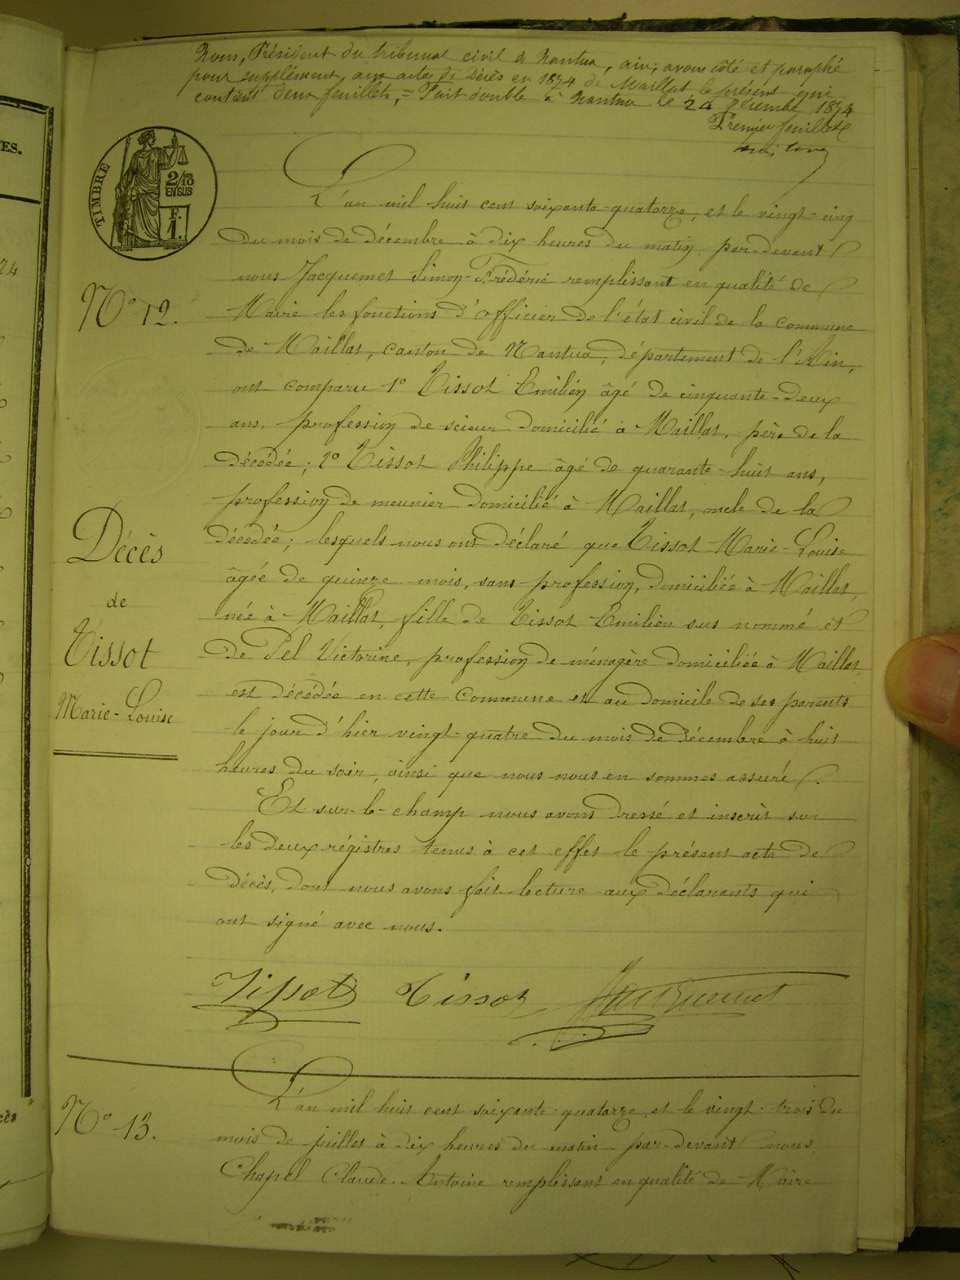 Nous, Président du tribunal civil de Nantua, ain, avons côté et paraphé
pour supplément, aux actes de décès en 1874 de Maillat le présent qui
contient deux feuillets, = Fait double à Nantua le 24 décembre 1874
Premier feuillet
ES.
TIMBRE
2/10
EN SUS
F.
1.
24
L'an mil huit cent soixante-quatorze, et le vingt-cinq
du mois de décembre à dix heures du matin par-devant
nous Jacquemet Simon-Frédéric remplissant en qualité de
N° 12.
Maire les fonctions d'officier de l'état civil de la commune
de Maillat, canton de Nantua, département de l'Ain,
ont comparu 1° Tissot Emilien âgé de cinquante-deux
ans, profession de scieur domicilié à Maillat, père de la
décédée; 2° Tissot Philippe âgé de quarante-huit ans,
profession de meunier domicilié à Maillat, oncle de la
Décès
décédée; lesquels nous ont déclaré que Tissot Marie-Louise
âgée de quinze mois, sans profession, domiciliée à Maillat,
de
née à Maillat, fille de Tissot Emilien sus nommé et
Tissot
de Pel Victorine, profession de ménagère domiciliée à Maillat,
est décédée en cette commune et au domicile de ses parents
Marie-Louise
le jour d'hier vingt-quatre du mois de décembre à huit
heures du soir, ainsi que nous nous en sommes assuré.
Et sur-le-champ nous avons dressé et inscrit sur
les deux régistres tenus à cet effet le présent acte de
décès, dont nous avons fait lecture aux déclarants qui
ont signé avec nous.
Tissot Tissot Jacquemet
N° 13.
L'an mil huit cent soixante-quatorze, et le vingt-trois du
mois de juillet à dix heures du matin par-devant nous
Chapel Claude-Antoine remplissant en qualité de Maire